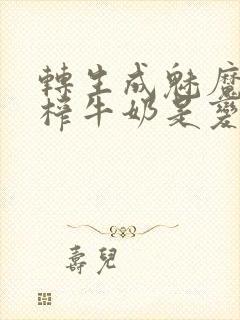 轉生成魅魔
榨牛奶是變
壽兒